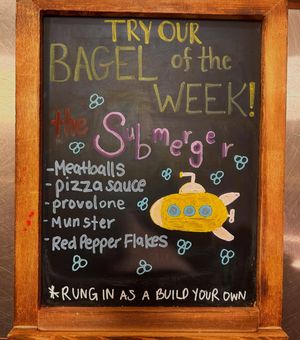 TRY OUR
BAGEL of the
WEEK!
the Submerger
-Meatballs
-pizza sauce
-provolone
-Munster
-Red Pepper Flakes
*RUNG IN AS A BUILD YOUR OWN